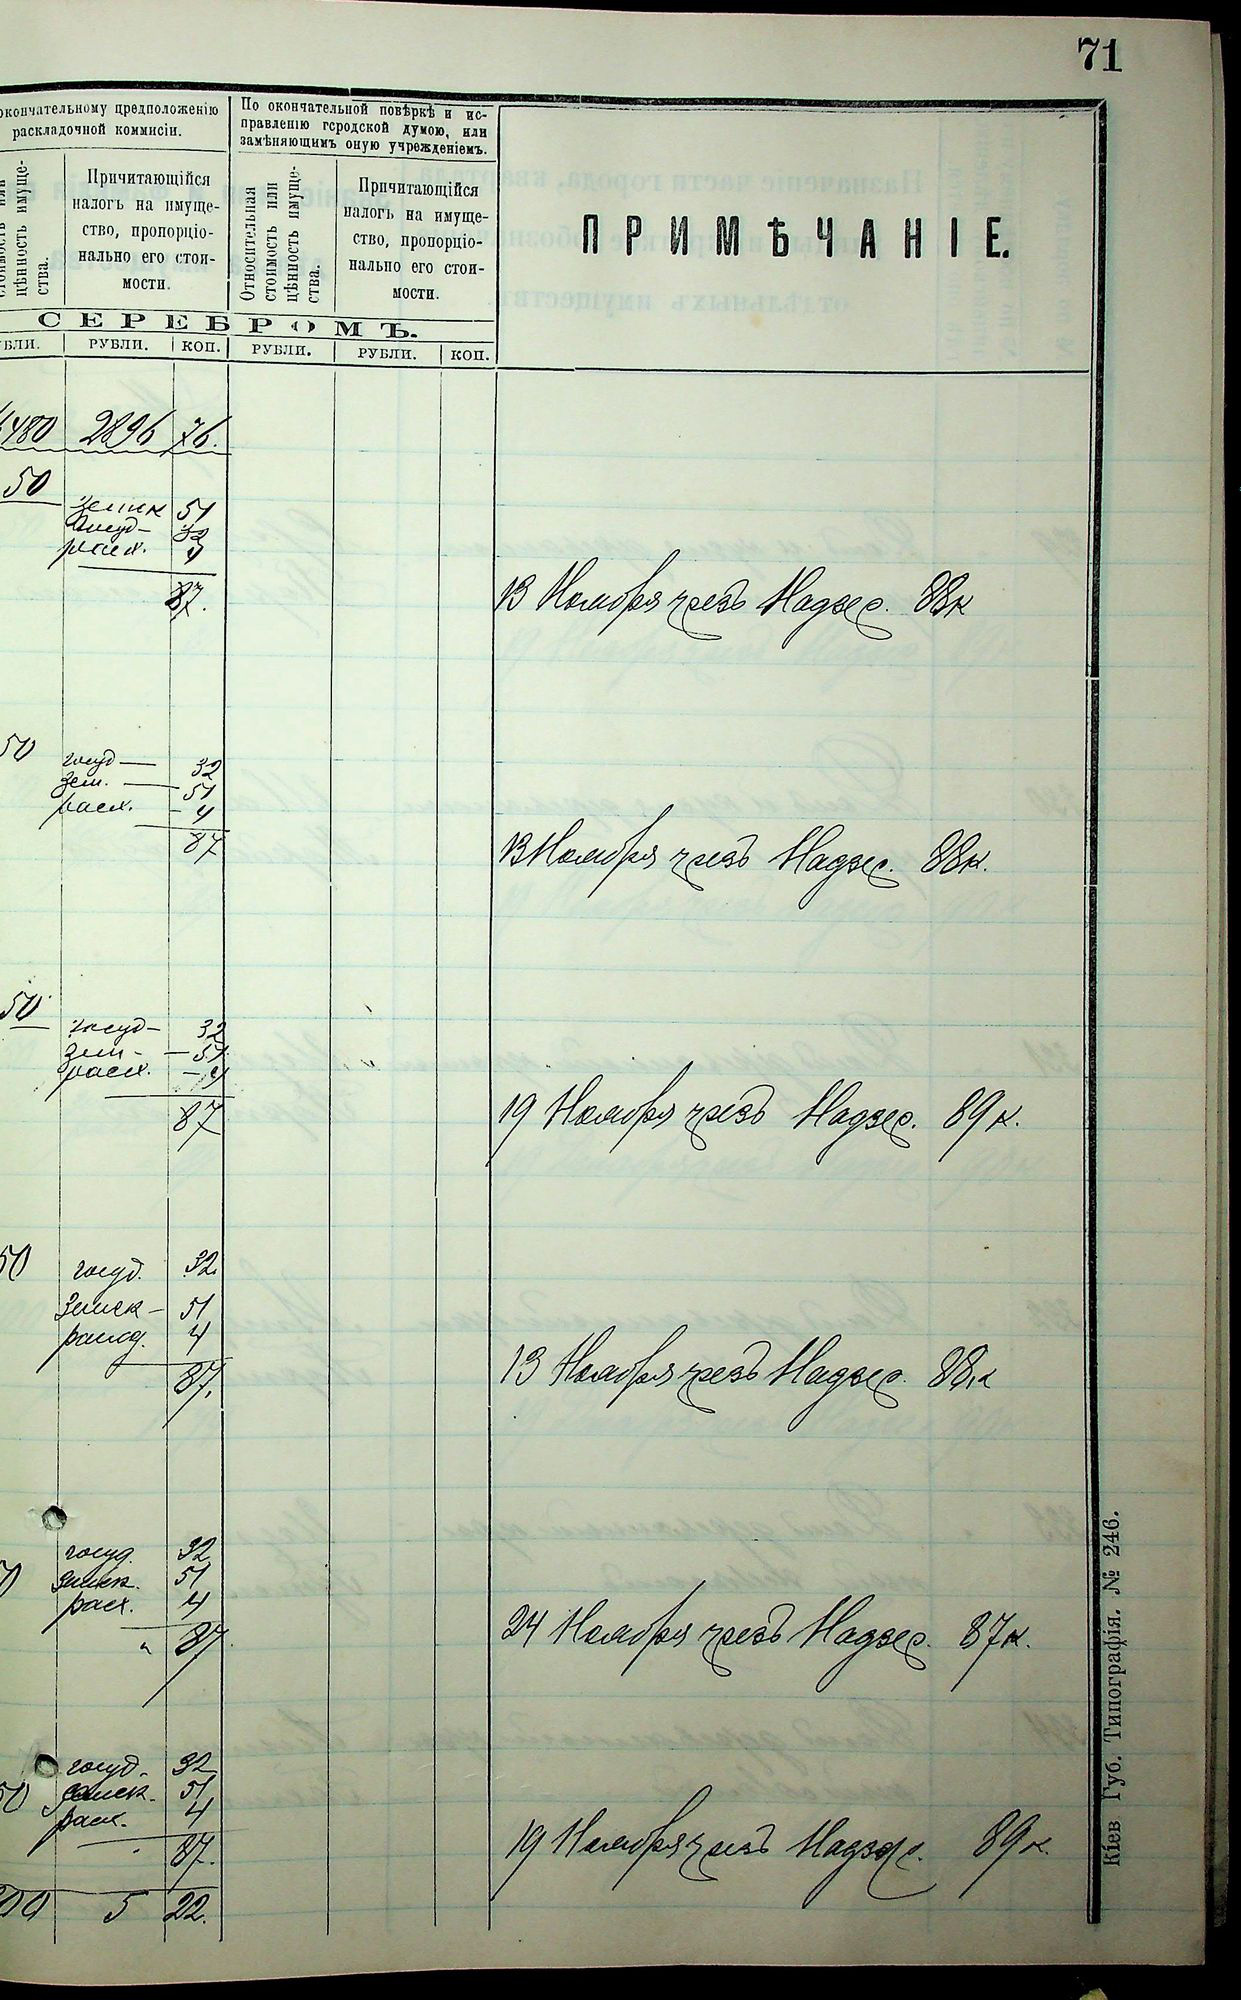 71
окончательному предположенію
раскладочной коммисіи.
По окончательной повѣркѣ и ис-
правленію городской думою, или
замѣняющимъ оную учрежденіемъ.
стоимость или
цѣнность имуще-
ства.
Причитающійся
налогъ на имуще-
ство, пропорціо-
нально его стои-
мости.
Относительная
стоимость или
цѣнность имуще-
ства.
Причитающійся
налогъ на имуще-
ство, пропорціо-
нально его стои-
мости.
ПРИМѢЧАНІЕ.
СЕРЕБРОМЪ.
РУБЛИ. КОП. РУБЛИ. РУБЛИ. КОП.
480 2896 76.
50
земск 51
госуд- 32
расх. 4
87.
13 Ноября чрезъ Надзс. 88к
50
госуд — 32
зем. — 51
расх. - 4
87
13 Ноября чрезъ Надзс. 88к.
50
госуд- 32
зем- - 51
расх. - 4
87
19 Ноября чрезъ Надзс. 89к.
50 госуд. 32
Земск- 51
расход. 4
87.
13 Ноября чрезъ Надзс. 88к
госуд. 32
земск. 51
расх. 4
" 87
24 Ноября чрезъ Надзс. 87к.
госуд. 32
50 земск. 51
расх. 4
87.
19 Ноября чрезъ Надзс. 89к.
5 22.
Кіев Губ. Типографія. № 246.